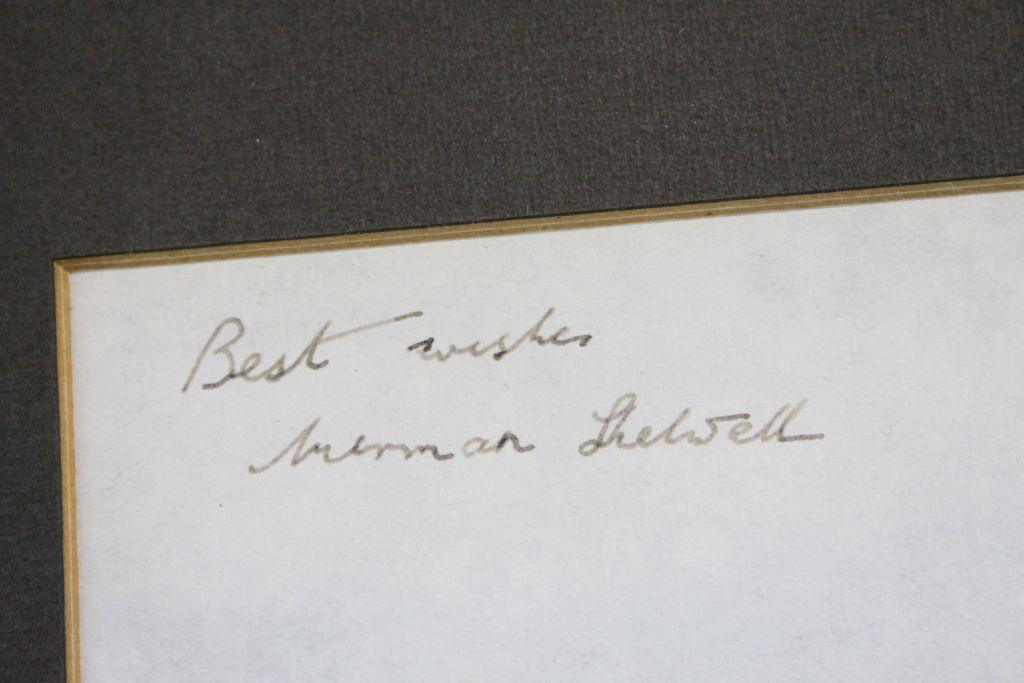 Best wishes
Norman Thelwell